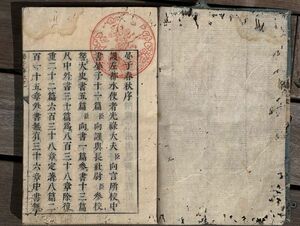 晏子春秋序
護左都水使者光祿大夫臣向言所校中
書晏子十一篇臣向謹與長社尉臣參校
讎太史書五篇臣向書一篇參書十三篇
凡中外書三十篇爲八百三十八章除復
重二十二篇六百三十八章定著八篇二
百一十五章外書無有三十六章中書無